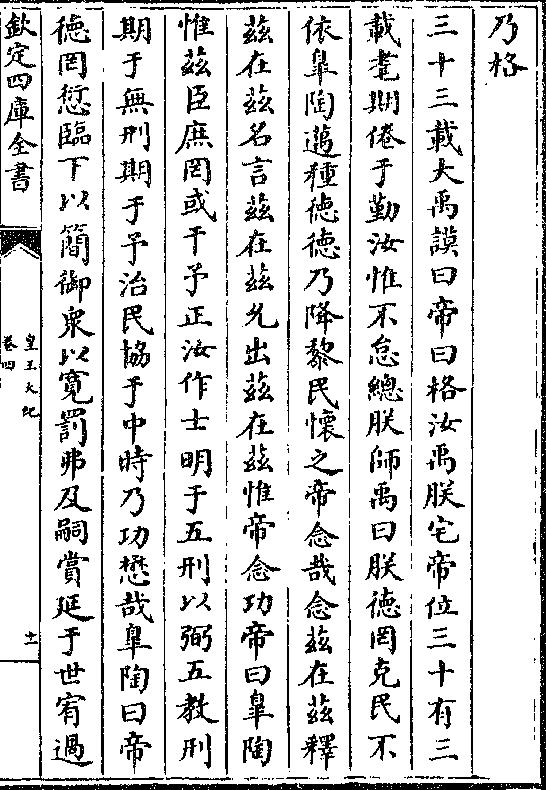 乃格
三十三載大禹謨曰帝曰格汝禹朕宅帝位三十有三
載耄期倦于勤汝惟不怠總朕師禹曰朕德罔克民不
依臯陶邁種德德乃降黎民懷之帝念哉念茲在茲釋
茲在茲名言茲在茲允出茲在茲惟帝念功帝曰臯陶
惟茲臣庶罔或干予正汝作士明于五刑以弼五教刑
期于無刑期于予治民協于中時乃功懋哉臯陶曰帝
德罔愆臨下以簡御衆以寛罰弗及嗣賞延于世宥過
欽定四庫全書
皇王大紀
卷四
十一